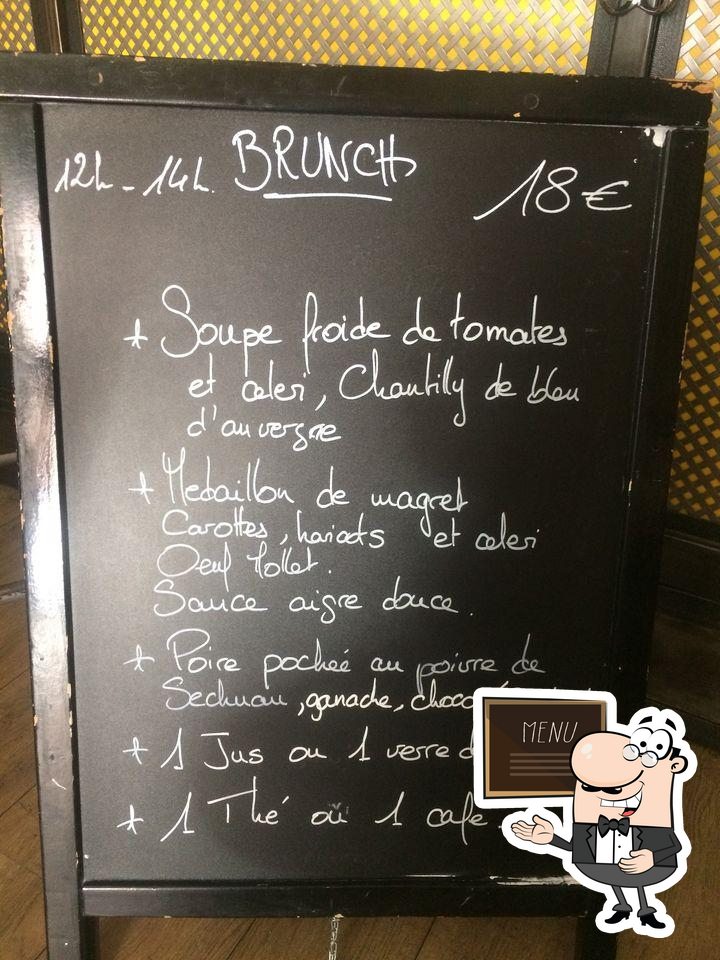 12h - 14h. BRUNCH 18€
* Soupe froide de tomates
et celeri, Chantilly de bleu
d'auvergne
* Medaillon de magret
Carottes, haricots et celeri
Oeuf Mollet.
Sauce aigre douce.
* Poire pocheé au poivre de
Sechuan, ganache,
* 1 Jus ou 1 verre
* 1 Thé ou 1 cafe
MENU